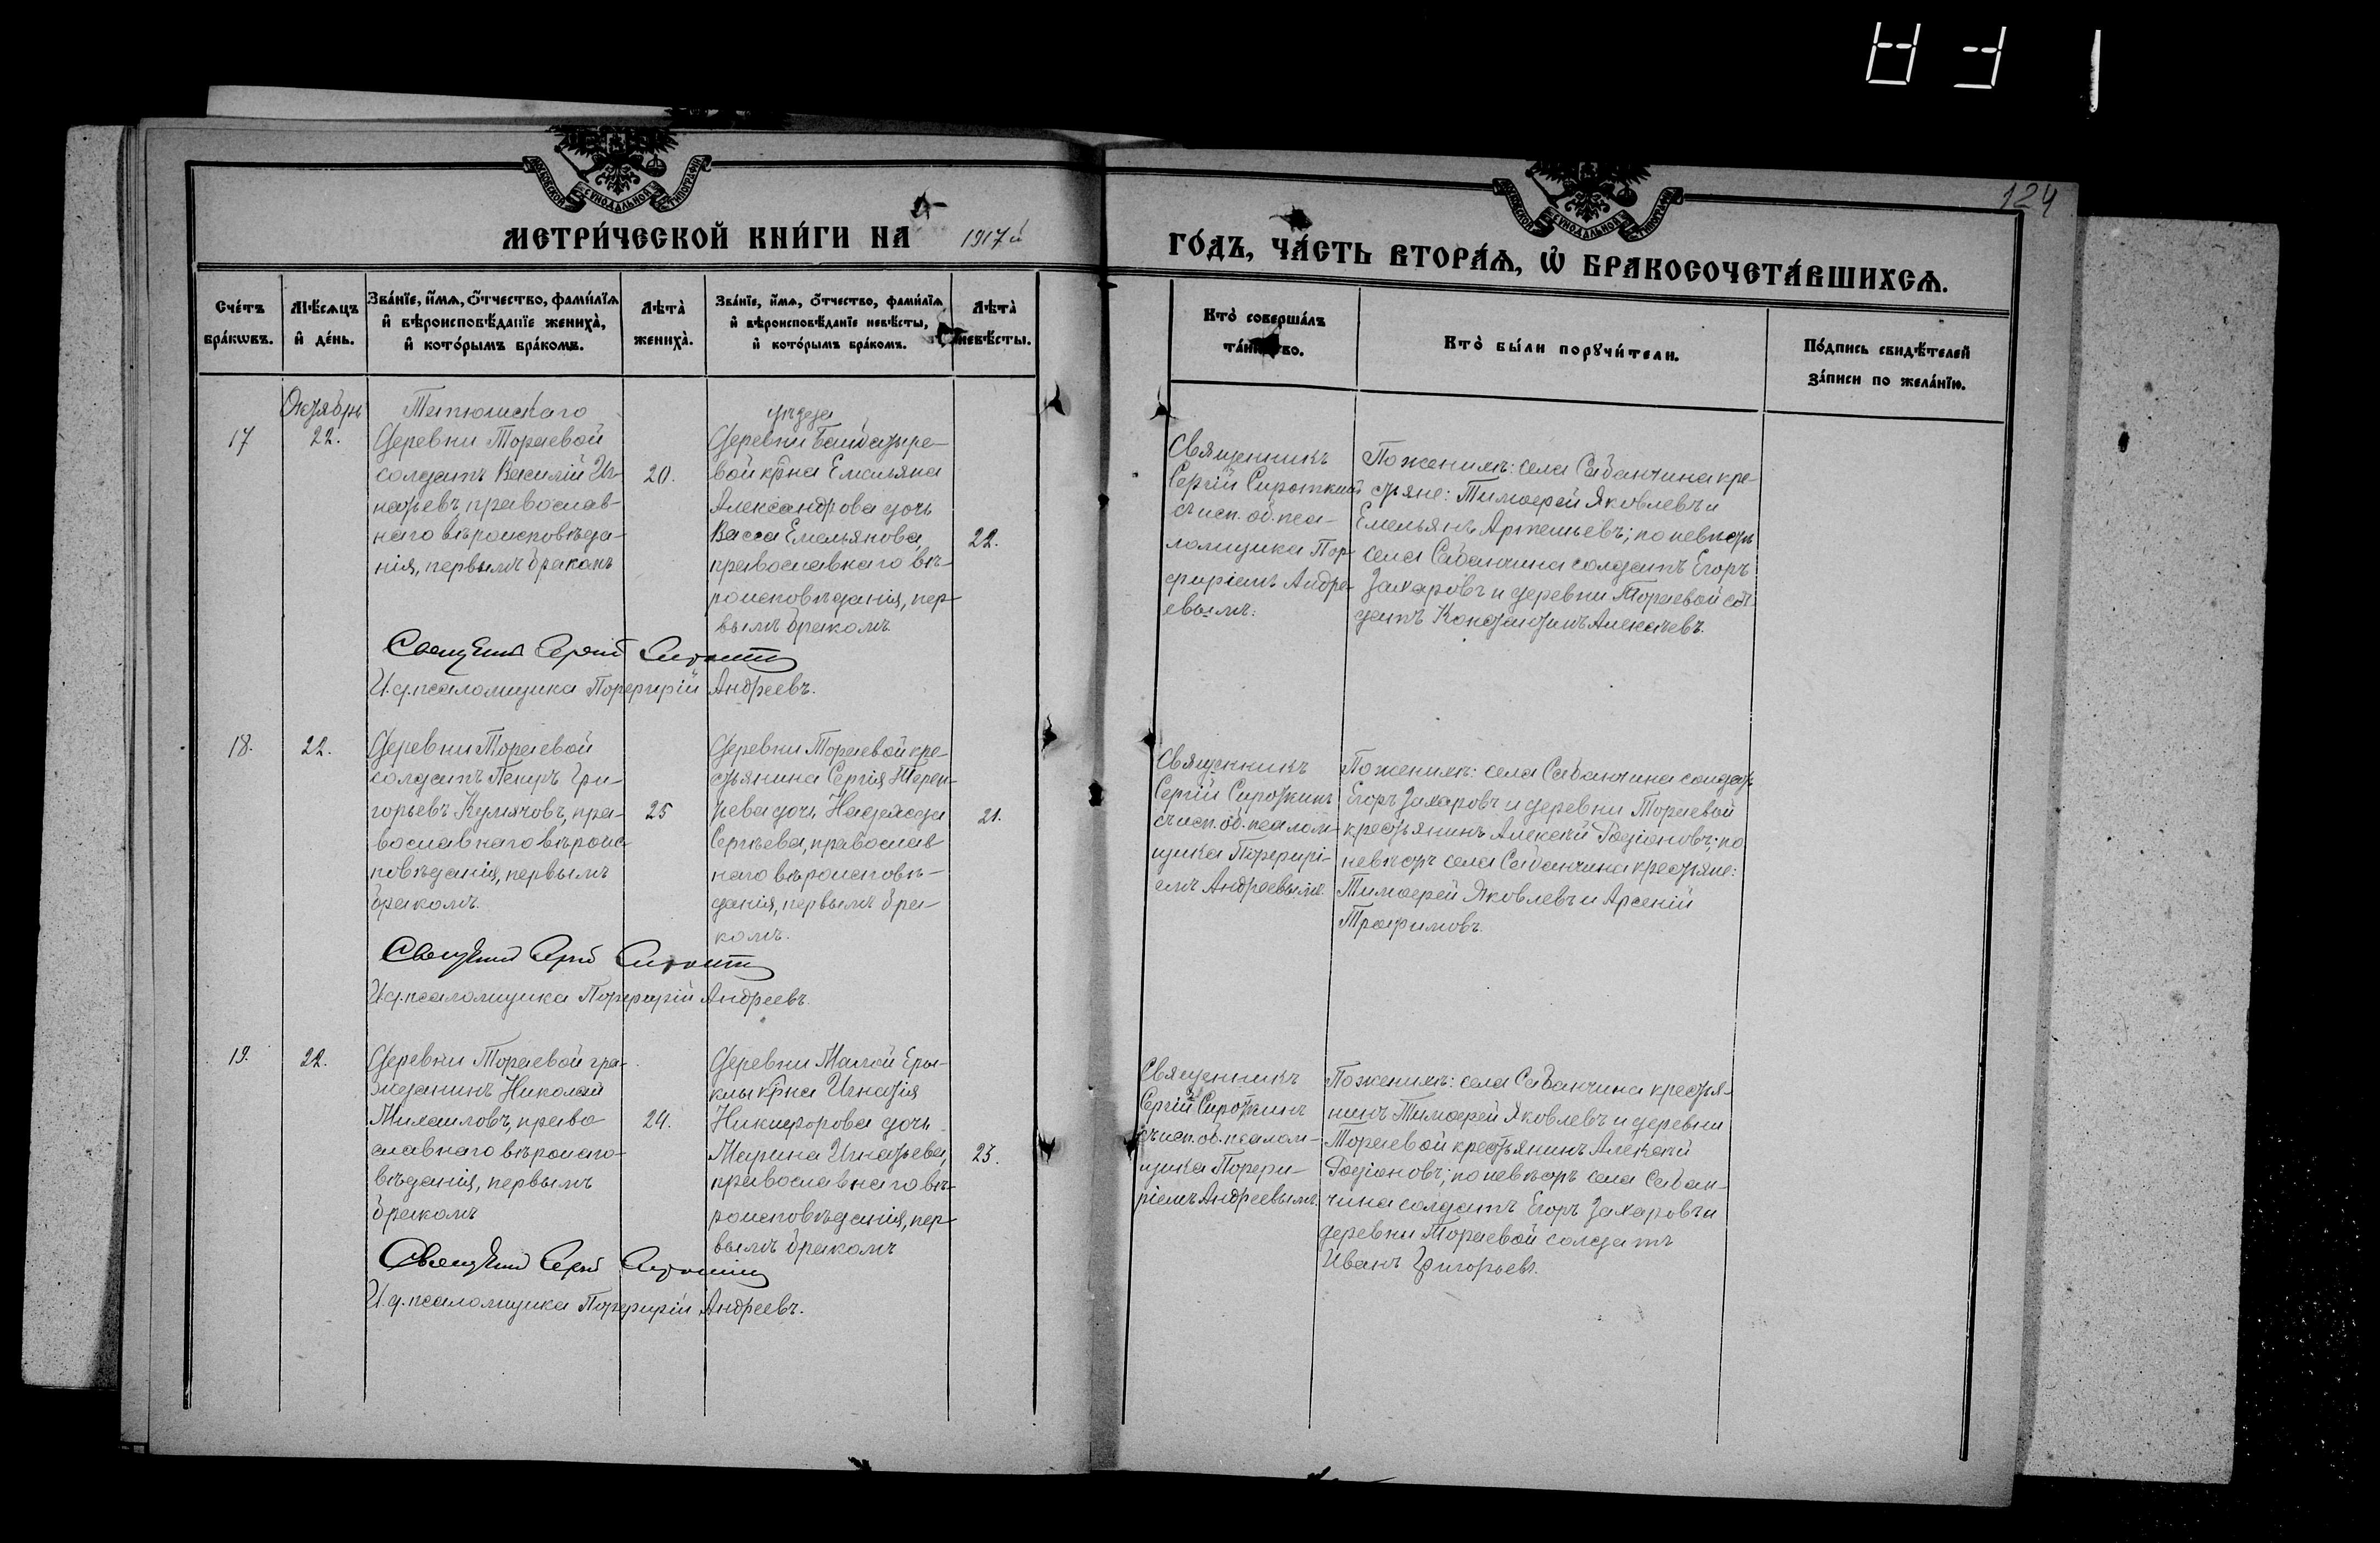 124
МЕТРИ́ЧЕСКОЙ КНИ́ГИ НА 1917 й
ГО́ДЪ, ЧА́СТЬ ВТОРА́Ѧ, Ѿ БРАКОСОЧЕТА́ВШИХСѦ.
Сче́тъ бра́кѡвъ.
Мѣ́сѧцъ и҆ де́нь.
Зва́нїе, и҆́мѧ, ѻ҆́тчество, фами́лїѧ
и҆ вѣроисповѣ́данїе жениха̀,
и҆ кото́рымъ бра́комъ.
Лѣта̀ жениха̀.
Зва́нїе, и҆́мѧ, ѻ҆́тчество, фами́лїѧ
и҆ вѣроисповѣ́данїе невѣ́сты,
и҆ кото́рымъ бра́комъ.
Лѣта̀ невѣ́сты.
Кто̀ соверша́лъ
та́инство.
Кто̀ бы́ли порꙋчи́тели.
По́дпись свидѣ́телей
за́писи по жела́нїю.
Октябрь
Тетюшскаго
уѣзда
17
22.
Деревни Тораевой
солдатъ Василій Иг-
натьевъ, православ-
наго вѣроисповѣда-
нія, первымъ бракомъ
20.
Деревни Байбатыре-
вой кр̃на Емельяна
Александрова дочь
Васса Емельянова,
православнаго вѣ-
роисповѣданія, пер-
вымъ бракомъ
22.
Священникъ
Сергій Сироткинъ
съ исп. об. пса-
ломщика Пор-
фиріемъ Андре-
евымъ.
По женихѣ: села Сабанчина кре-
стьяне: Тимофей Яковлевъ и
Емельянъ Артемьевъ; по невѣстѣ
села Сабанчина солдатъ Егоръ
Захаровъ и деревни Тораевой сол-
датъ Константинъ Алексѣевъ.
Священникъ Сергій Сироткинъ
И.д. псаломщика Порфирій Андреевъ.
18.
22.
Деревни Тораевой
солдатъ Петръ Гри-
горьевъ Кумячовъ, пра-
вославнаго вѣроис-
повѣданія, первымъ
бракомъ.
25
Деревни Тораевой кре-
стьянина Сергія Терен-
тьева дочь Надежда
Сергѣева, православ
наго вѣроисповѣ-
данія, первымъ бра-
комъ.
21.
Священникъ
Сергій Сироткинъ
съ исп. об. псалом-
щика Порфирі-
емъ Андреевымъ.
По женихѣ: села Сабанчина солдатъ
Егоръ Захаровъ и деревни Тораевой
крестьянинъ Алексѣй Родіоновъ; по
невѣстѣ села Сабанчина крестьяне:
Тимофей Яковлевъ и Арсеній
Трофимовъ.
Священникъ Сергій Сироткинъ
И.д. псаломщика Порфирій Андреевъ.
19.
22.
Деревни Тораевой гра-
жданинъ Николай
Михаиловъ, право
славнаго вѣроиспо-
вѣданія, первымъ
бракомъ
24.
Деревни Малой Еры-
клы кр̃на Игнатія
Никифорова дочь
Марина Игнатьева,
православнаго вѣ-
роисповѣданія, пер-
вымъ бракомъ
23.
Священникъ
Сергій Сироткинъ
съ исп. об. псалом-
щика Порфи-
ріемъ Андреевымъ.
По женихѣ: села Сабанчина крестья-
нинъ Тимофей Яковлевъ и деревни
Тораевой крестьянинъ Алексѣй
Родіоновъ; по невѣстѣ села Сабан-
чина солдатъ Егоръ Захаровъ и
деревни Тораевой солдатъ
Иванъ Григорьевъ.
Священникъ Сергій Сироткинъ
И.д. псаломщика Порфирій Андреевъ.